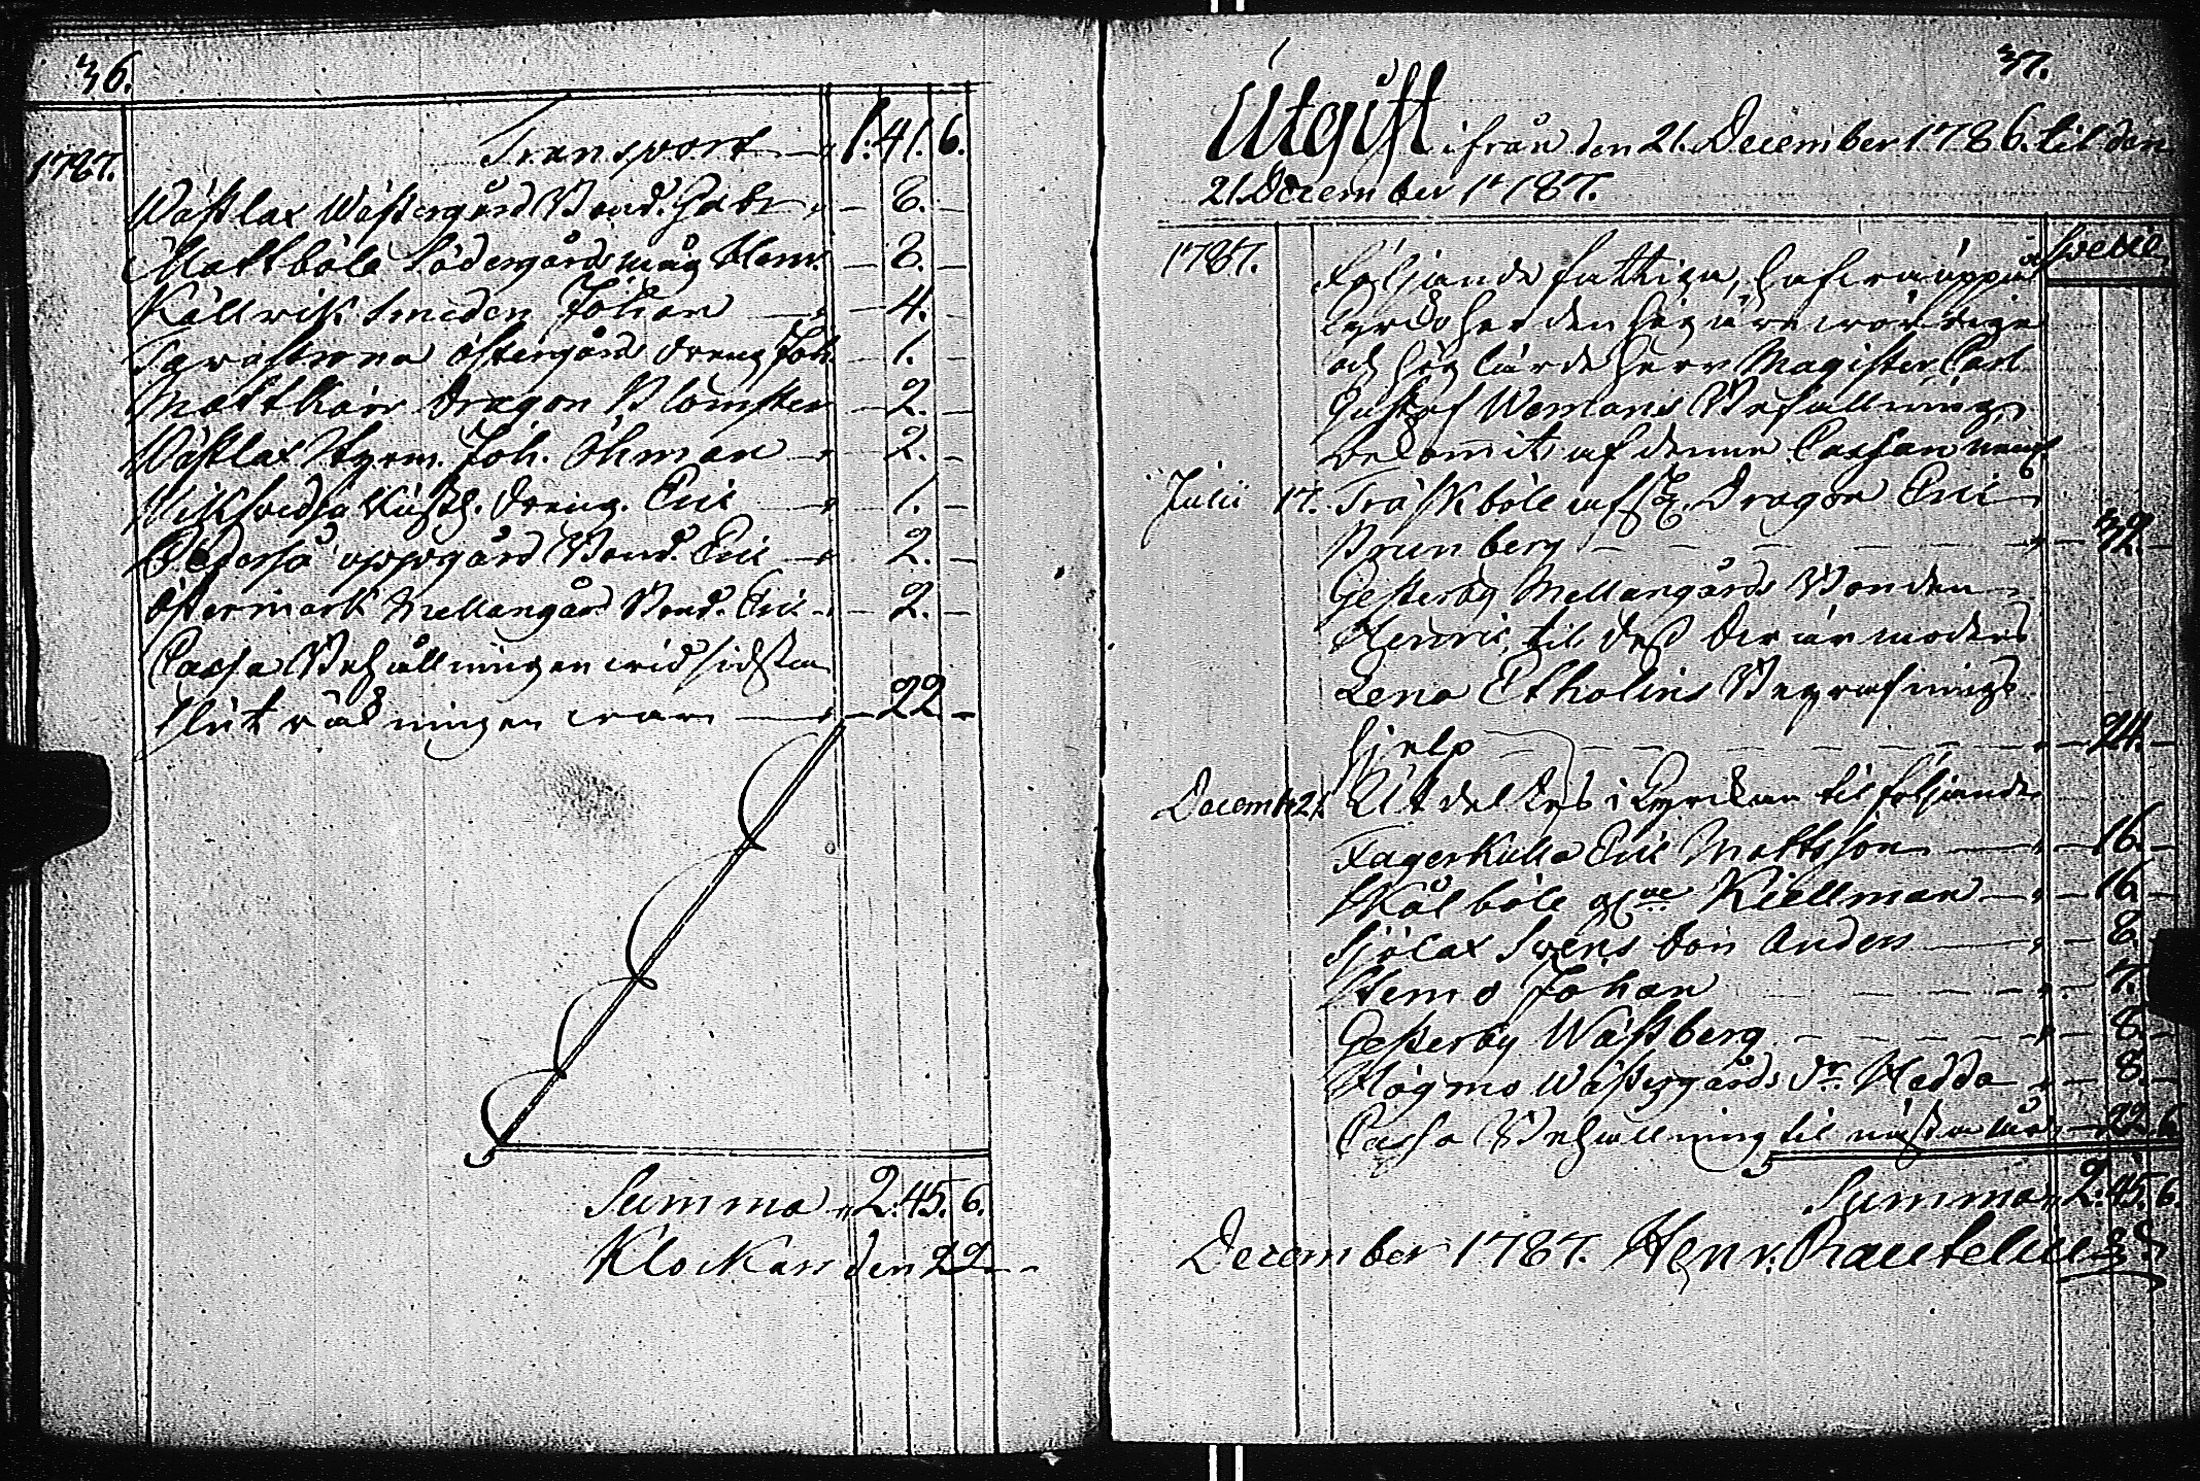 36.
1787.
Transport — 1. 41. 6.
Wästlax Wästergård Bond. Gabr — 8. —
Mattböle Södergårds måg Henr. — 8. —
Källvik Smeden Johan — 4. —
Östergårds dreng Joh. — 1. —
Mattkärr Dragon Blomster — 2. —
Wästlax Styrm. Joh. Öhman — 2. —
dreng. Eric — 1. —
Pedersjö oppgård Bond. Eric — 2. —
Östermark Mellangård Bond. Eric — 2. —
Cassa Behållningen wid sidsta
slut räkningen war — 22 —
Summa 2. 45. 6.
Klockars den 22
37.
Utgift ifrån den 21. December 1786. til den
21. December 1787.
1787.
Följande fattiga, hafwa uppå
höglärde Herr Magister Carl
Gustaf Wemans Befallning,
bekommit af denne Cassan
Julii 17. Träskböle afsk. Dragon Eric
Brunberg — 32. —
Gesterby Mellangårds Bonden
Henric, til dess
Lena Etholins Begrafnings
hjelp — 24. —
Decemb. 21. Utdeltes i Kyrckan til följande
Fagerkulla Eric Mattsson — 16. —
Skålböle Kiellman — 16. —
Sjölax Svens Son Anders — 8. —
Johan — 7. —
Gesterby Wästberg — 8. —
Högmo Wästergårds dr. Hedda — 8. —
Cassa Behållning til nästa år — 22. 6.
Summa 2. 45. 6.
December 1787. Henr. Rautelius